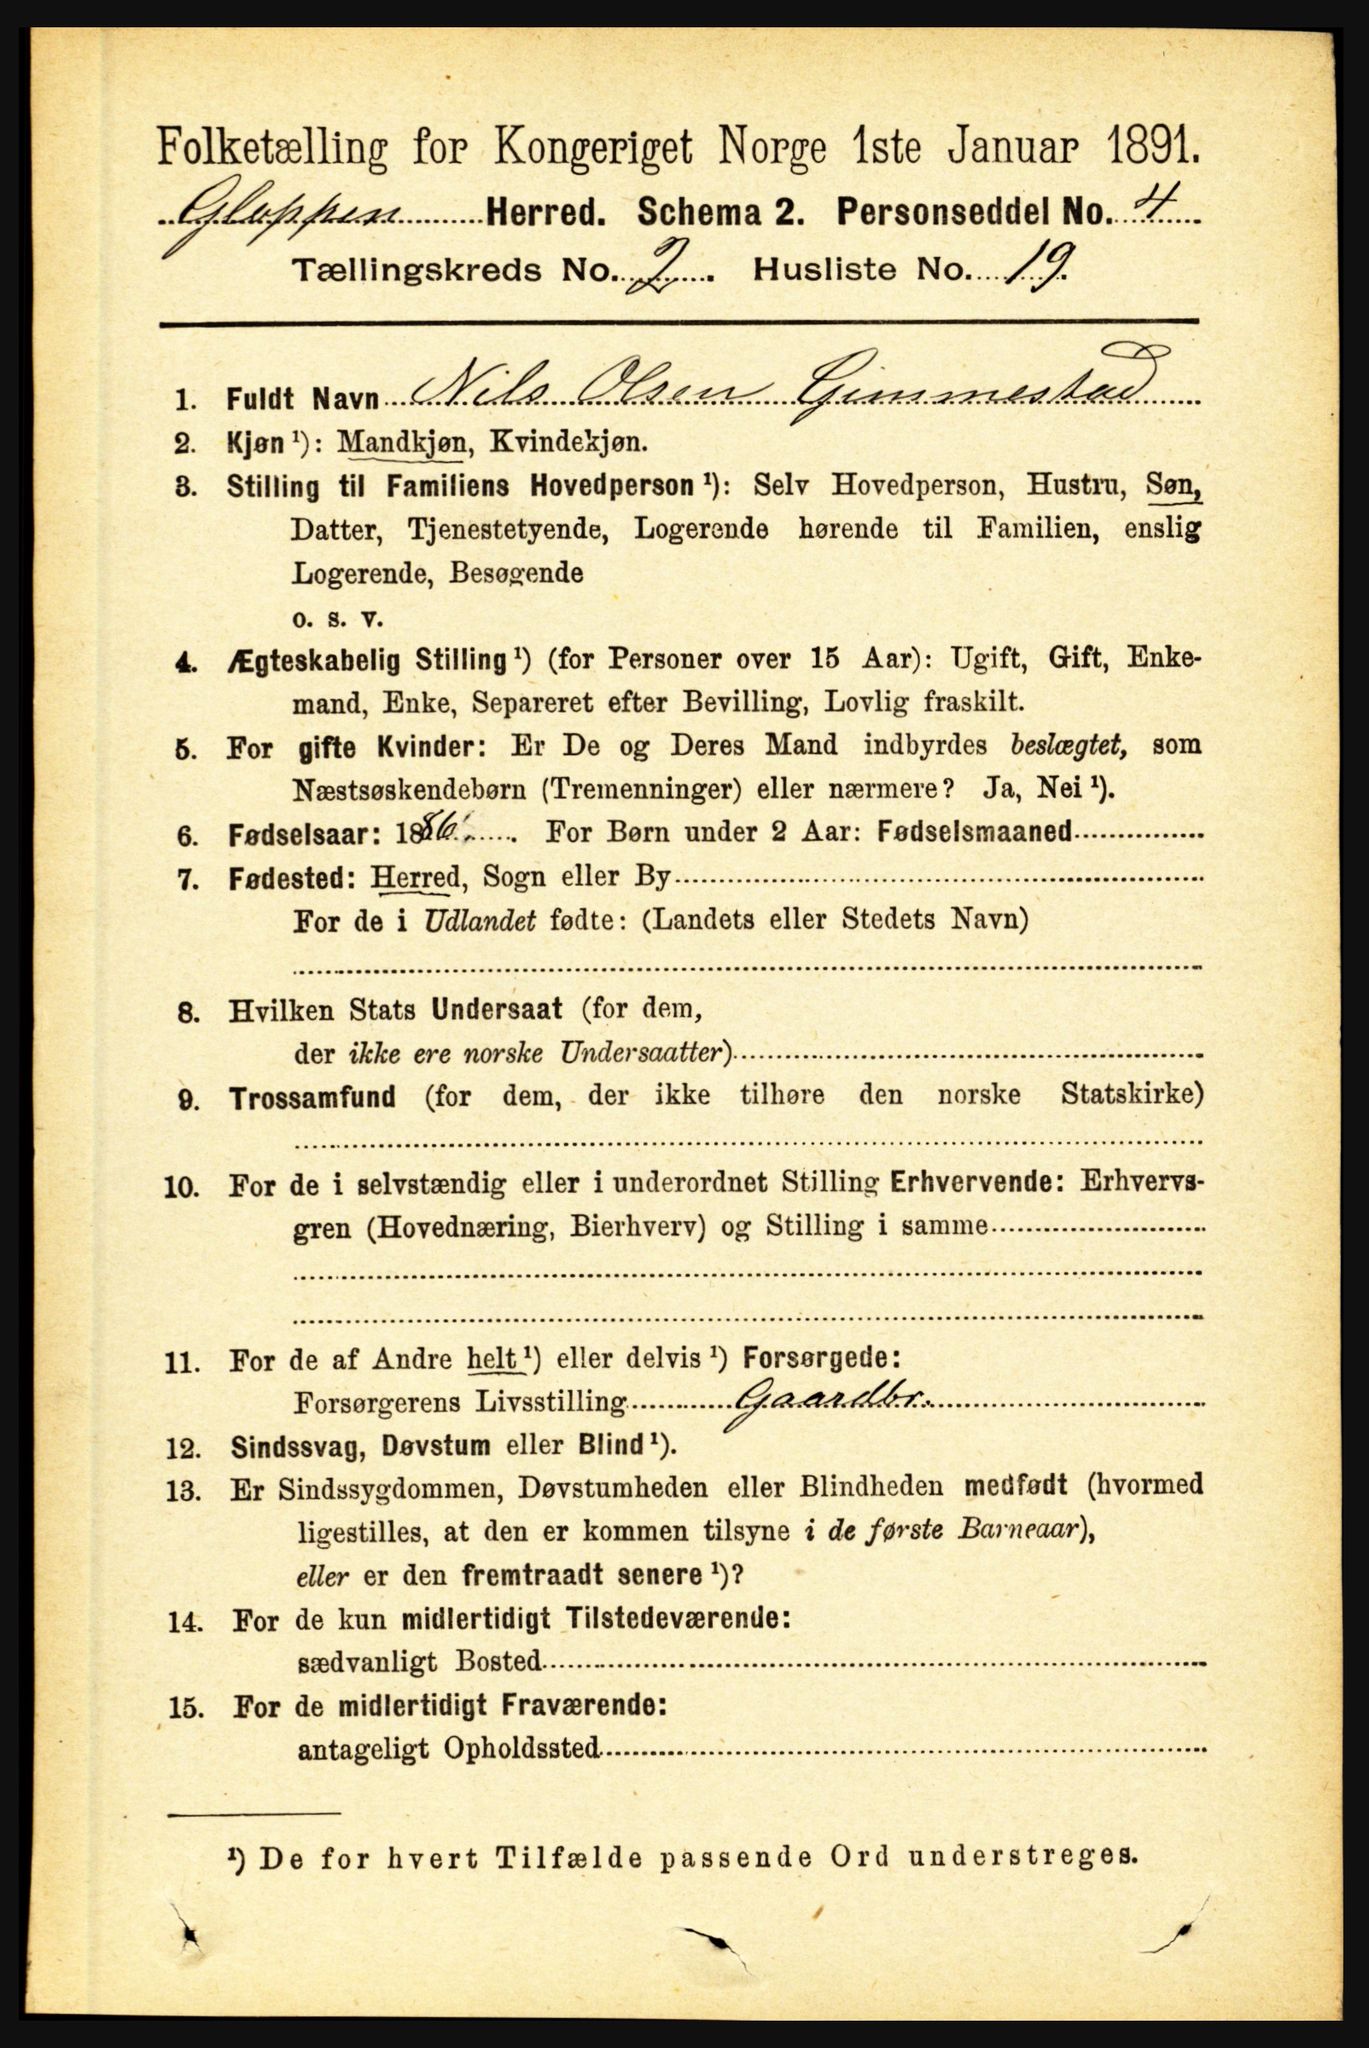 Folketælling for Kongeriget Norge 1ste Januar 1891.
Gloppen Herred. Schema 2. Personseddel No. 4
Tællingskreds No. 2. Husliste No. 19.
1. Fuldt Navn Nils Olsen Gimmestad
2. Kjøn ¹): Mandkjøn, Kvindekjøn.
3. Stilling til Familiens Hovedperson ¹): Selv Hovedperson, Hustru, Søn,
Datter, Tjenestetyende, Logerende hørende til Familien, enslig
Logerende, Besøgende
o. s. v.
4. Ægteskabelig Stilling ¹) (for Personer over 15 Aar): Ugift, Gift, Enke-
mand, Enke, Separeret efter Bevilling, Lovlig fraskilt.
5. For gifte Kvinder: Er De og Deres Mand indbyrdes beslægtet, som
Næstsøskendebørn (Tremenninger) eller nærmere? Ja, Nei ¹).
6. Fødselsaar: 1886. For Børn under 2 Aar: Fødselsmaaned
7. Fødested: Herred, Sogn eller By
For de i Udlandet fødte: (Landets eller Stedets Navn)
8. Hvilken Stats Undersaat (for dem,
der ikke ere norske Undersaatter)
9. Trossamfund (for dem, der ikke tilhøre den norske Statskirke)
10. For de i selvstændig eller i underordnet Stilling Erhvervende: Erhvervs-
gren (Hovednæring, Bierhverv) og Stilling i samme
11. For de af Andre helt ¹) eller delvis ¹) Forsørgede:
Forsørgerens Livsstilling Gaardbr.
12. Sindssvag, Døvstum eller Blind ¹).
13. Er Sindssygdommen, Døvstumheden eller Blindheden medfødt (hvormed
ligestilles, at den er kommen tilsyne i de første Barneaar),
eller er den fremtraadt senere ¹)?
14. For de kun midlertidigt Tilstedeværende:
sædvanligt Bosted
15. For de midlertidigt Fraværende:
antageligt Opholdssted
¹) De for hvert Tilfælde passende Ord understreges.